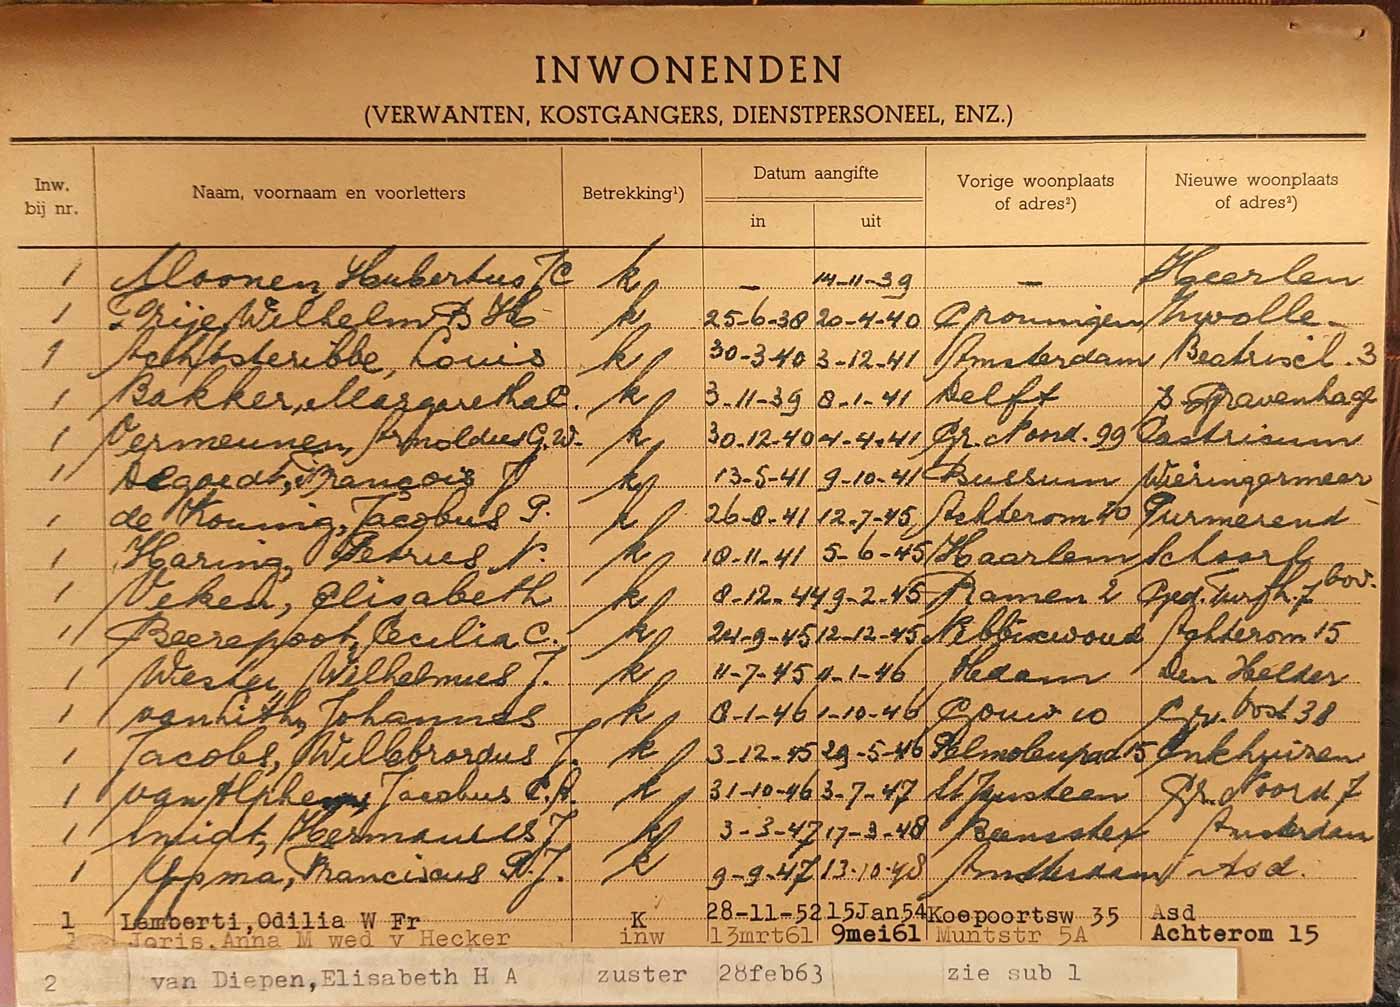 INWONENDEN
(VERWANTEN, KOSTGANGERS, DIENSTPERSONEEL, ENZ.)
Inw. bij nr. Naam, voornaam en voorletters Betrekking¹) Datum aangifte in uit Vorige woonplaats of adres²) Nieuwe woonplaats of adres²)
1 Moonen, Hubertus J C k – 14-11-39 – Heerlen
1 Wilhelm B H k 25-6-38 20-4-40 Groningen Zwolle
1 Achtsteribbe, Louis k 30-3-40 3-12-41 Amsterdam 3
1 Bakker, Margaretha C. k 3-11-39 8-1-41 Delft 's-Gravenhage
1 Vermeunen, Arnoldus G.W. k 30-12-40 4-4-41 Gr. Noord. 99 Castricum
1 Degoedt, François J k 13-5-41 9-10-41 Bussum Wieringermeer
1 de Koning, Jacobus P. k 26-8-41 12-7-45 Achterom 40 Purmerend
1 Haring, Petrus N. k 18-11-41 5-6-45 Haarlem Schoorl
1 Veken, Elisabeth k 8-12-44 9-2-45 Ramen 2 Ged. Turfh. 7 bov.
1 Beerepoot, Cecilia C. k 24-9-45 12-12-45 Nibbixwoud Achterom 15
1 Wester, Wilhelmus J. k 11-7-45 11-1-46 Den Helder
1 van Lith, Johannes k 8-1-46 1-10-46 Gouw 10 Gr. Oost 38
1 Jacobs, Willebrordus J. k 3-12-45 29-5-46 Pelmolenpad 15 Enkhuizen
1 van Alphen, Jacobus C.A. k 31-10-46 3-7-47 Gr. Noord 7
1 Smidt, Hermanus J. k 3-3-47 17-3-48 Beemster Amsterdam
1 Ypma, Franciscus P.J. k 9-9-47 13-10-48 Amsterdam Asd.
1 Lamberti, Odilia W Fr K 28-11-52 15Jan54 Koepoortsw 35 Asd
1 Joris, Anna M wed v Hecker inw 13mrt61 9mei61 Muntstr 5A Achterom 15
2 van Diepen, Elisabeth H A zuster 28feb63 zie sub 1